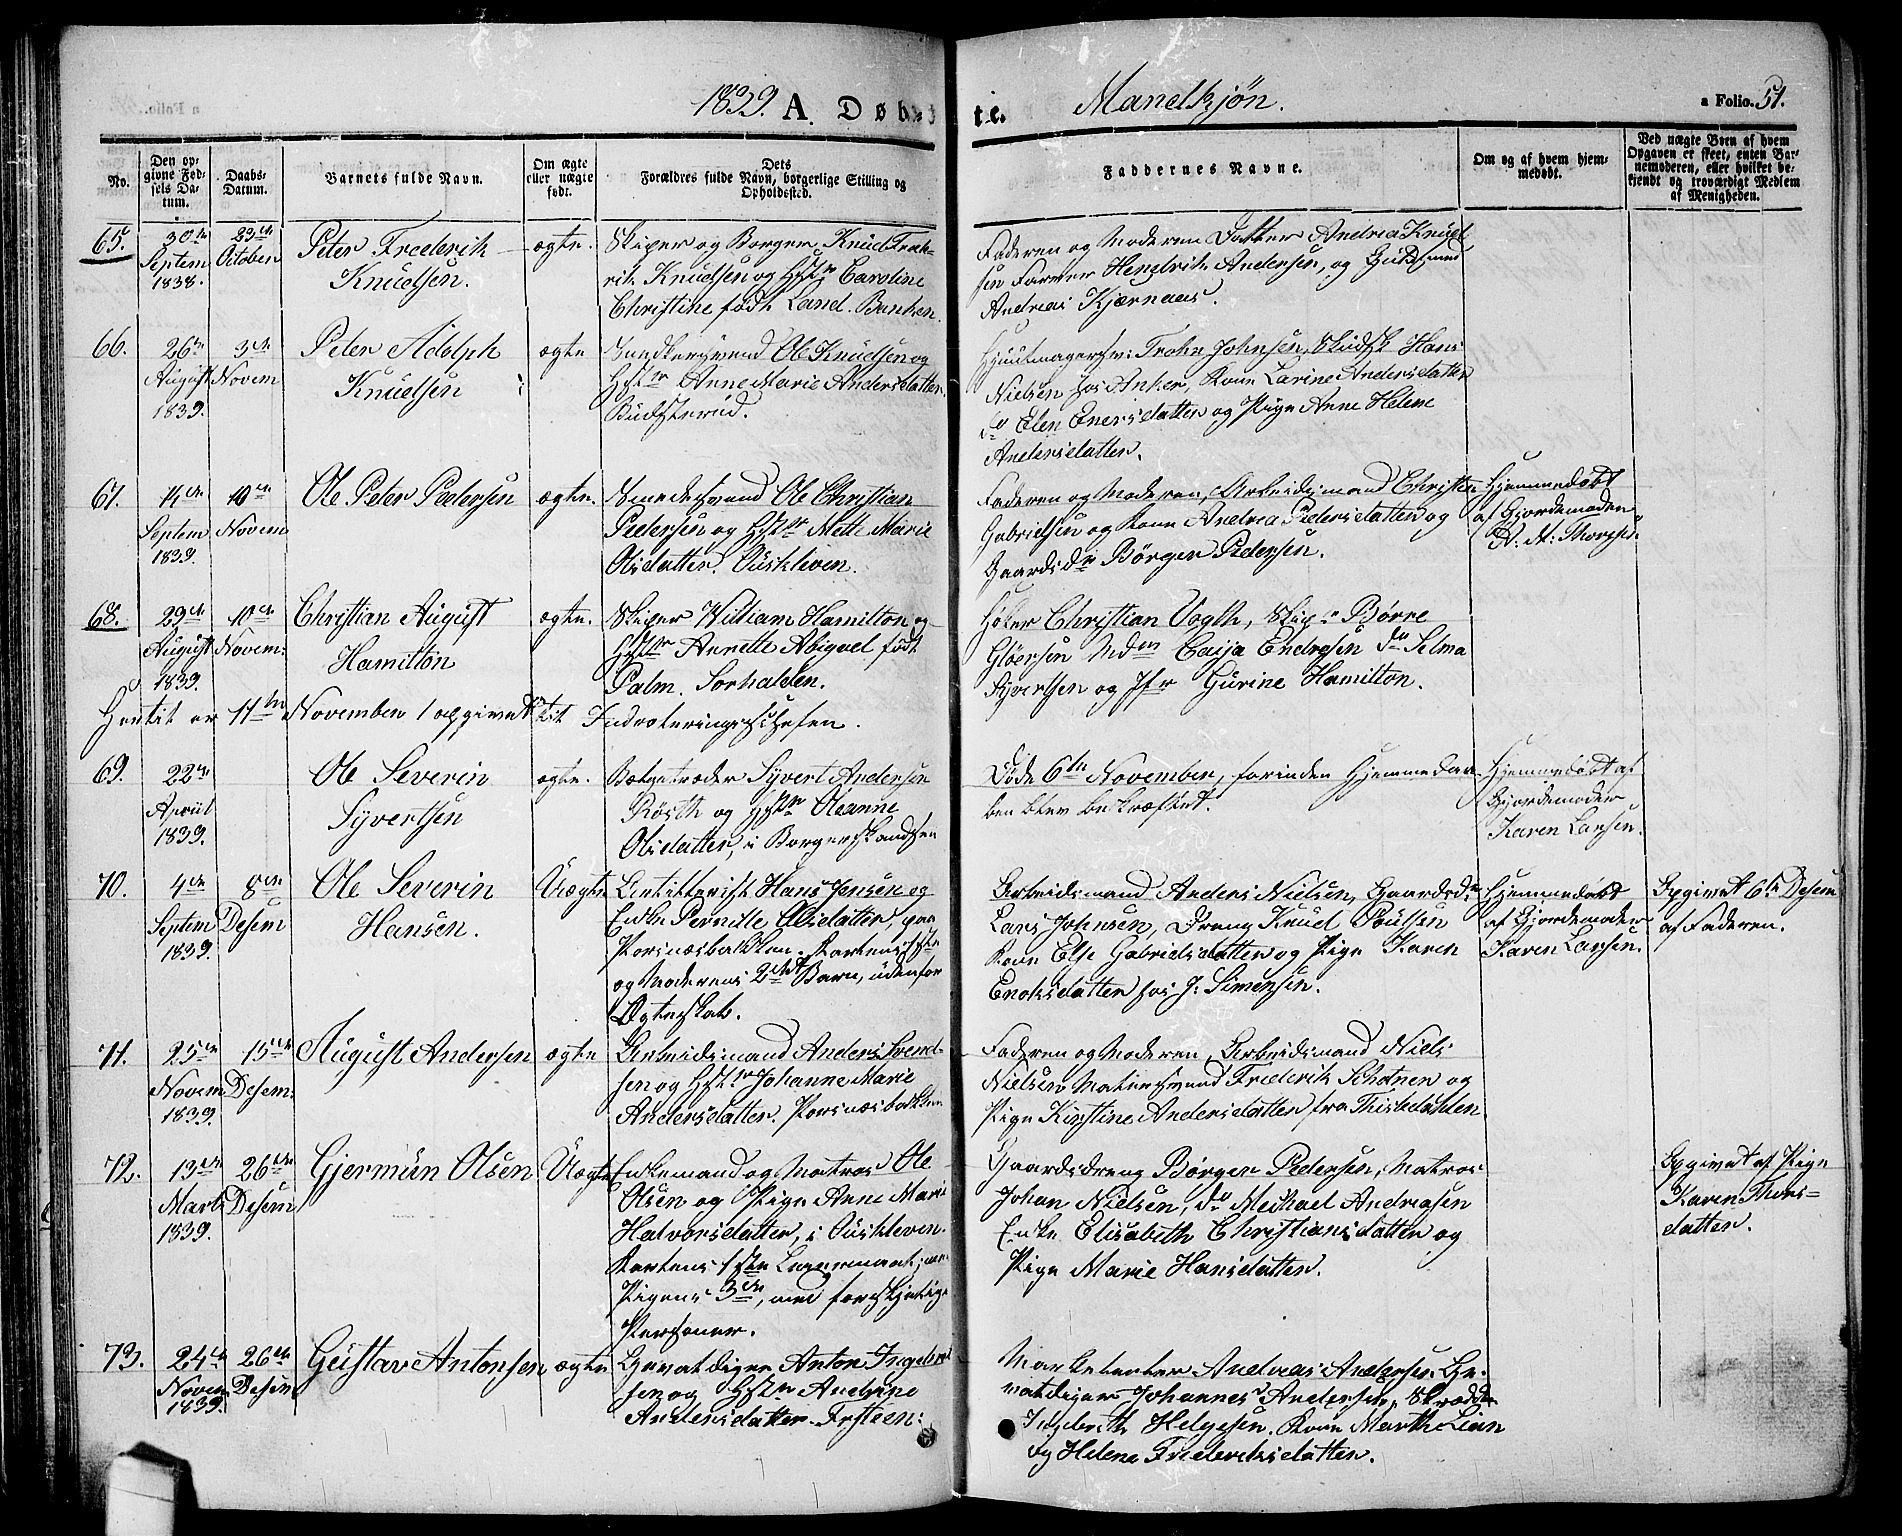 1839. A. Døbte. Mandkjøn. a Folio. 51.
No.
Den opgivne Fødsels Datum.
Daabs-Datum.
Barnets fulde Navn.
Om ægte eller uægte født.
Dets Forældres fulde Navn, borgerlige Stilling og Opholdssted.
Faddernes Navne.
Om og af hvem hjemmedøbt.
Ved uægte Børn af hvem Opgaven er skeet, enten Barnemoderen, eller hvilket bekjendt og troværdigt Medlem af Menigheden.
65.
30te Septem 1838.
23de October
Peter Frederik
Knudsen.
ægte.
Skiper og Borger Knud Frede-
rik Knudsen og Hstr Caroline
Christine født Land. Banken.
Faderen og Moderen Datter Andrea Knud
sen Farver Hendrik Andersen, og Guldsmed
Andreas Kjærnaas.
66.
26te August 1839.
3die Novem
Peter Adolph
Knudsen
ægte
Snedkersvend Ole Knudsen og
Hstr Anne Marie Andersdatter
Nielsen hos Anker, Kone Larine Andersdatter
do Elen Enersdatter og Pige Anne Helene
Andersdatter.
67.
14de Septem 1839.
10de Novem
Ole Peter Pedersen
ægte.
Smedesvend Ole Christian
Pedersen og Hstr Mette Marie
Olsdatter. Øuskleven.
Faderen og Moderen, Arbeidsmand Christen
Gabrielsen og Kone Andrea Pedersdatter og
Gaardsdr Børger Pedersen.
Hjemmedøbt
af Gjordemoder
A. M. Thorsen
68.
29de August 1839.
10de Novem:
Christian August
Hamilton
ægte.
Skiper William Hamilton og
Hstr Annette Abigael født
Palm. Sorhalden.
Høker Christian Vogth, Skipr Børre
Gløersen Mdm Caija Endresen do Selma
Syvertsen og Jfr Gurine Hamilton.
Hertil er 11te November 1 opgivet til Indrolleringschefen.
69.
22de April 1839.
Ole Severin
Syvertsen
ægte.
Syvert Andersen
Røsth og Hstr Oleanne
Olsdatter, i Borgerskandsen
Døde 6te November, forinden Hjemmedaa-
ben blev bekræftet.
Hjemmedøbt af
Gjordemoder
Karen Larsen.
70.
4de Septem 1839.
8de Desem
Ole Severin
Hansen.
Uægte
Artillerist Hans Jensen og
Enke Pernille Olsdatter, paa
Porsnæsbakken. Karlens 1ste
og Moderens 2det Barn, udenfor
Ægteskab.
Arbeidsmand Anders Nielsen, Gaardsdr
Lars Johnsen, Dreng Knud Poulsen
Kone Else Gabrielsdatter og Pige Karen
Enoksdatter hos J. Simonsen.
Hjemmedøbt
af Gjordemoder
Karen Larsen.
Opgivet 6te Desem
af Faderen.
71.
25de Novem 1839.
15de Desem:
August Andersen
ægte
Arbeidsmand Anders Svend-
sen og Hstr Johanne Marie
Andersdatter. Porsnæsbakken
Faderen og Moderen, Arbeidsmand Niels
Nielsen, Malersvend Frederik Schønen og
Pige Kirstine Andersdatter fra Thisedahlen.
72.
13de Marts 1839.
26de Desem
Gjermun Olsen
Uægte
Enkemand og Matros Ole
Olsen og Pige Anne Marie
Halvorsdatter, i Øuskleven.
Karlens 1ste Leiermaal, men
Pigens 3die, med forskjellige
Personer.
Gaardsdreng Børger Pedersen, Matros
Johan Nielsen, do Michael Andreasen
Enke Elisabeth Christiansdatter og
Pige Marie Hansdatter.
Opgivet af Pige
Karen Thors=
datter.
73.
24de Novem 1839.
26de Desem
Gustav Antonsen
ægte
Gevaldiger Anton Ingebret
sen og Hstr Andrine
Andersdatter. Fæsteen:
Marketenter Andreas Andersen. Ge-
valdiger Johannes Andersen, Skrædder
Ingebreth Helgesen. Kone Marthe Lian
og Helene Frederiksdatter.